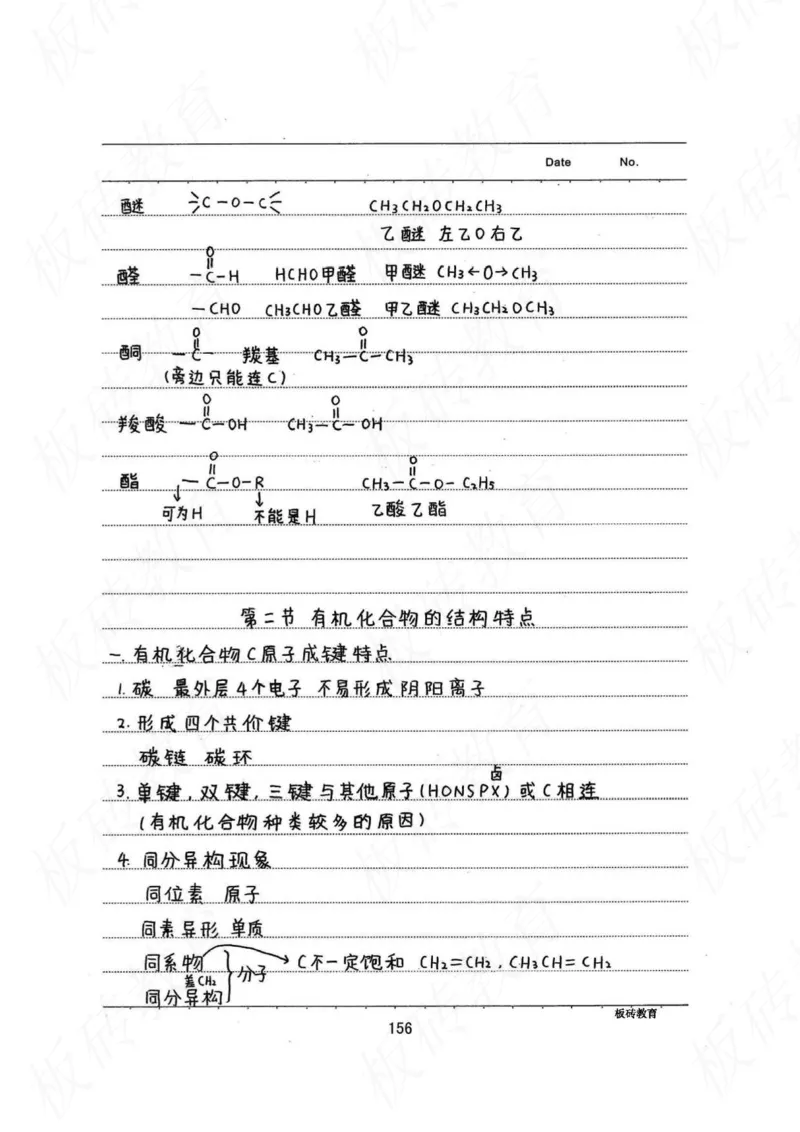 Date No.
醚 >C-O-C< CH3CH2OCH2CH3
乙醚 左乙O右乙
醛 O
-C-H HCHO甲醛 甲醚 CH3←O→CH3
-CHO CH3CHO乙醛 甲乙醚 CH3CH2OCH3
酮 O O
-C- 羰基 CH3-C-CH3
(旁边只能连C)
O O
羧酸 -C-OH CH3-C-OH
O O
酯 -C-O-R CH3-C-O-C2H5
↓ ↓
可为H 不能是H 乙酸乙酯
第二节 有机化合物的结构特点
一.有机化合物C原子成键特点
1.碳 最外层4个电子 不易形成阴阳离子
2.形成四个共价键
碳链 碳环
卤
3.单键,双键,三键与其他原子(HONSPX)或C相连
(有机化合物种类较多的原因)
4.同分异构现象
同位素 原子
同素异形 单质
同系物 → C不一定饱和 CH2=CH2,CH3CH=CH2
差CH2 } 分子
同分异构
板砖教育
156